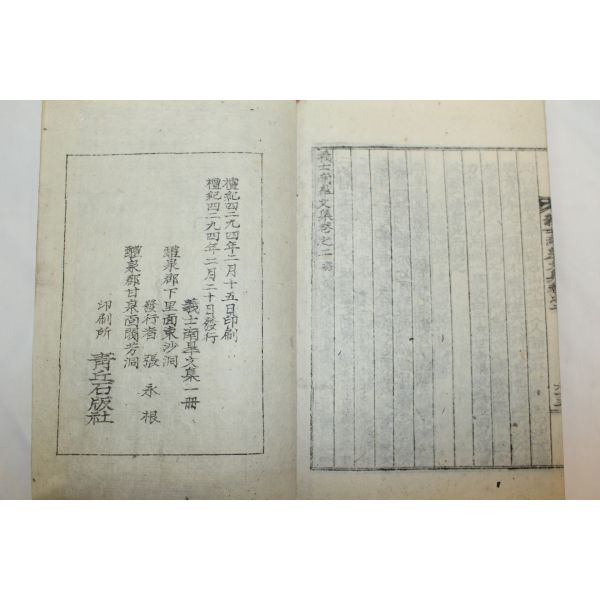 義士南皐文集卷之二 終
檀紀四二九四年二月十五日印刷
檀紀四二九四年二月二十日發行
義士南皐文集一冊
醴泉郡下里面東沙洞
發行者 張永根
醴泉郡甘泉面閥芳洞
印刷所 靑丘石版社